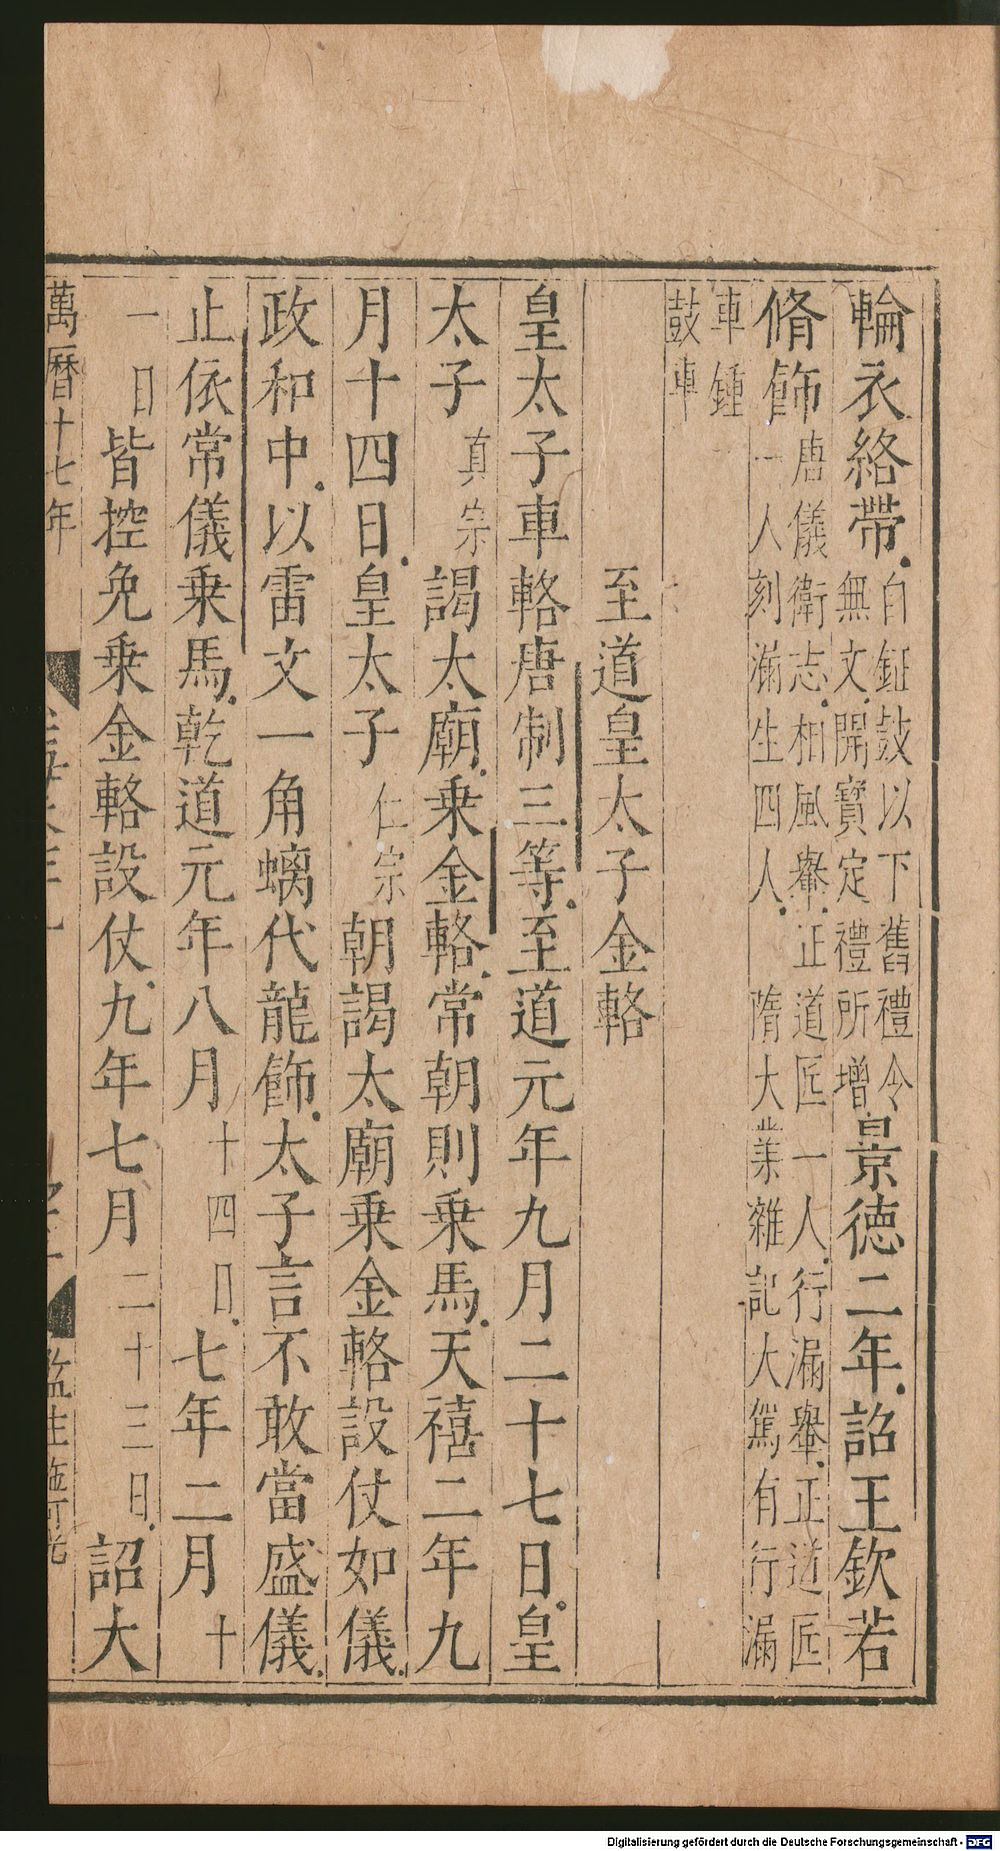 輪衣絡帶自鉦鼓以下舊禮令無文開寶定禮所增景德二年詔王欽若
脩飾唐儀衛志相風轝正道匠一人行漏轝正道匠一人刻漏生四人隋大業雜記大駕有行漏
車鍾鼓車
至道皇太子金輅
皇太子車輅唐制三等至道元年九月二十七日皇
太子真宗謁太廟乗金輅常朝則乗馬天禧二年九
月十四日皇太子仁宗朝謁太廟乗金輅設仗如儀
政和中以雷文一角螭代龍飾太子言不敢當盛儀
止依常儀乗馬乾道元年八月十四日七年二月十
一日皆控免乗金輅設仗九年七月二十三日詔大
萬曆十七年
監生
Digitalisierung gefördert durch die Deutsche Forschungsgemeinschaft - DFG